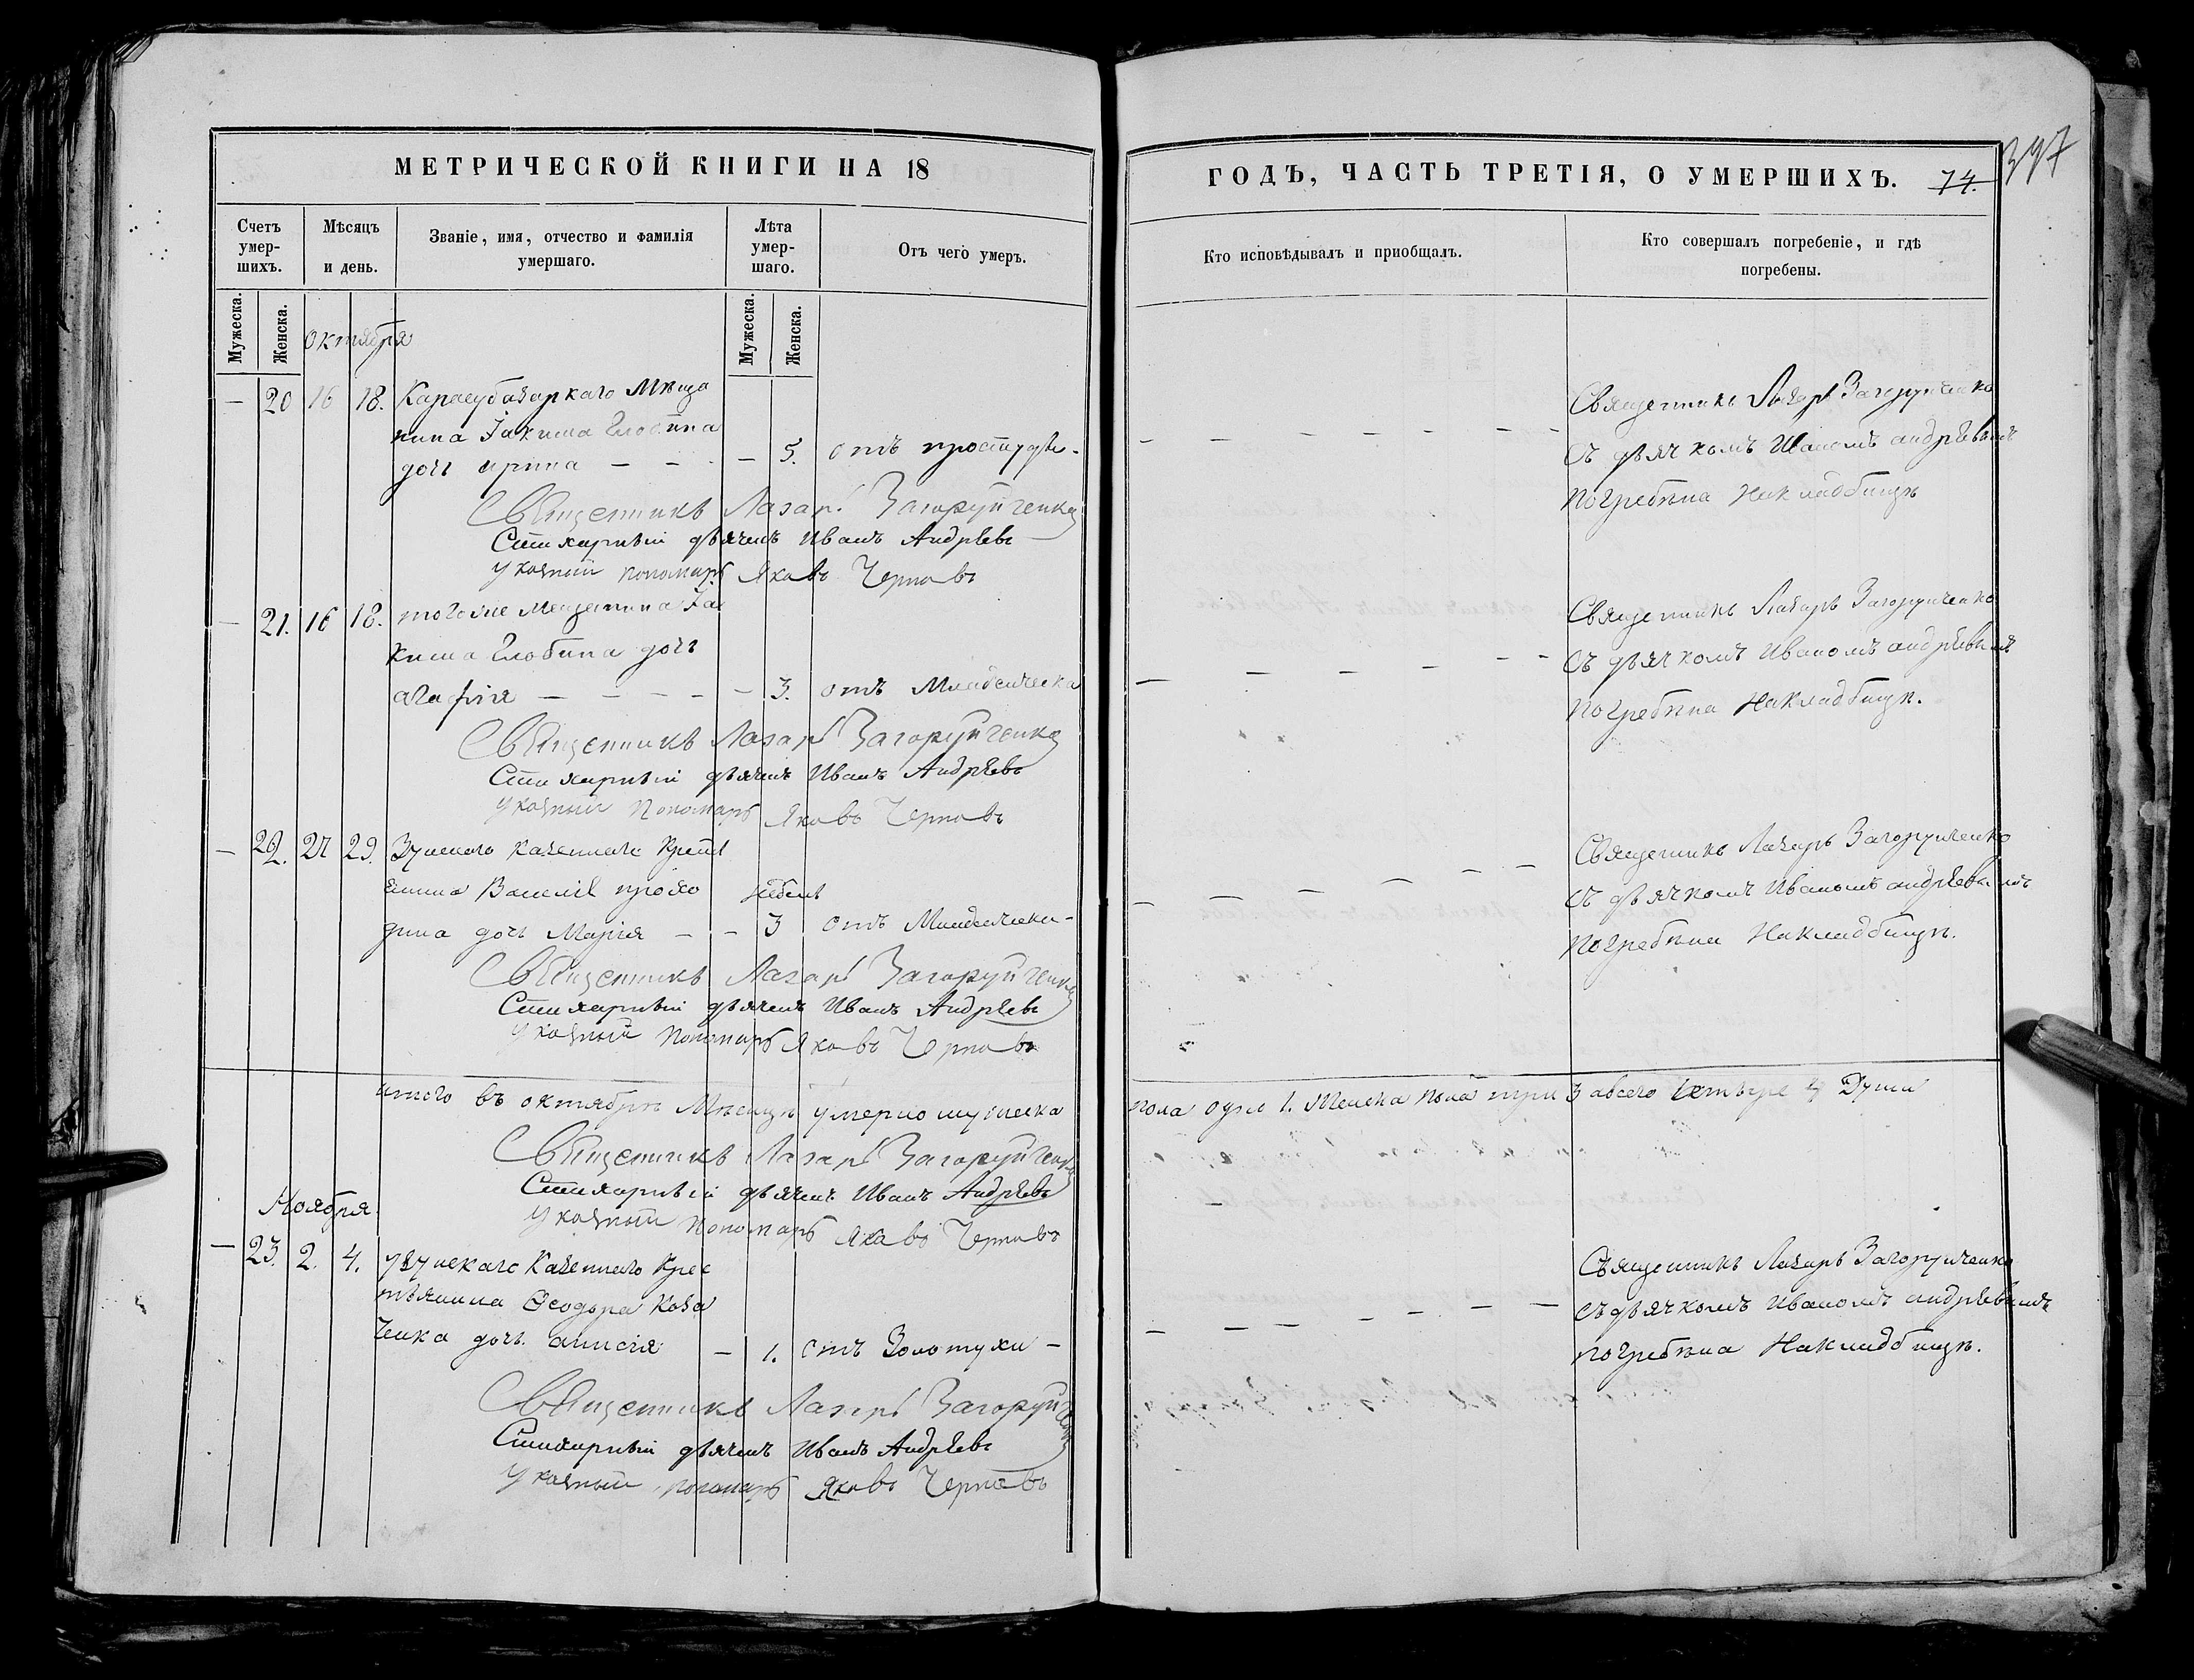 МЕТРИЧЕСКОЙ КНИГИ НА 18
Счетъ умер-шихъ.
Мѣсяцъ и день.
Званіе, имя, отчество и фамилія умершаго.
Лѣта умер-шаго.
Отъ чего умеръ.
Мужеска.
Женска.
Мужеска.
Женска.
октября
— 20 16 18. Карасубазаркаго Мѣща
нина Іакима Глобина
дочь ирина — — — 5. отъ простуды.
Священникъ Лазарь Загоруйченко
Стихарный дьячекъ Иванъ Андрѣевъ
указный пономарь Яковъ Черновъ
— 21. 16 18. тогоже Мещанина Іа
кима Глобина дочь
агафія — — — — — 3. отъ Младенческа
Священникъ Лазарь Загоруйченко
Стихарный дьячекъ Иванъ Андрѣевъ
указный Пономарь Яковъ Черновъ
— 22. 27 29. Зуйскаго казеннаго Крест
янина Василія
дина дочь Марія — — 3 отъ Младенческа-
Священникъ Лазарь Загоруйченко
Стихарный дьячекъ Иванъ Андрѣевъ
указный пономарь Яковъ Черновъ
итого въ октябрѣ Мѣсяцѣ умерло мужеска
Священникъ Лазарь Загоруйченко
Стихарный дьячекъ Иванъ Андрѣевъ
указный пономарь Яковъ Черновъ
Ноября
— 23. 2. 4. Казеннаго Крес
тьянина Ѳеодора Коза
ченка дочь анисія — 1. отъ Золотухи —
Священникъ Лазарь Загоруйченко
Стихарный дьячекъ Иванъ Андрѣевъ
указный пономарь Яковъ Черновъ
ГОДЪ, ЧАСТЬ ТРЕТІЯ, О УМЕРШИХЪ. 74.
397
Кто исповѣдывалъ и пріобщалъ.
Кто совершалъ погребеніе, и гдѣ погребены.
Священникъ Лазарь Загоруйченко
съ дьячкомъ Иваномъ андрѣевымъ
погребѣна Накладбищѣ
Священникъ Лазарь Загоруйченко
съ дьячкомъ Иваномъ андрѣевымъ
погребѣна Накладбищѣ.
Священникъ Лазарь Загоруйченко
съ дьячкомъ Иваномъ андрѣевымъ
погребѣна Накладбищѣ.
пола одно 1. Женска пола три 3 авсего четыре 4 Души
Священникъ Лазарь Загоруйченко
съ дьячкомъ Иваномъ андрѣевымъ
погребѣна Накладбищѣ.